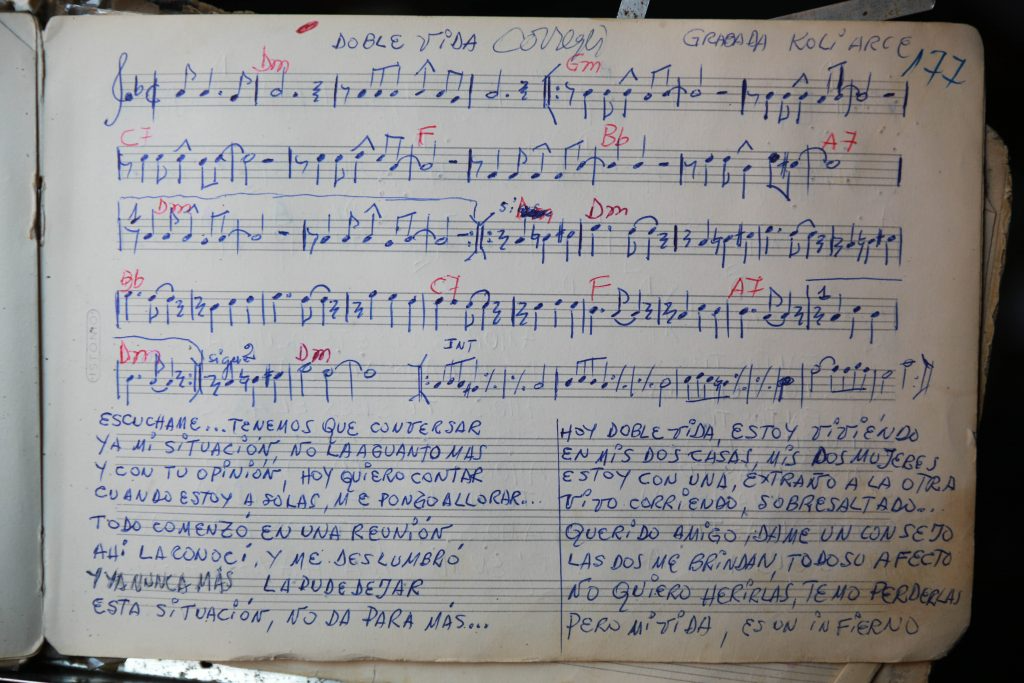 DOBLE VIDA GRABADA KOLI ARCE
177
Dm Gm
C7 F Bb A7
1 Dm Dm
Bb C7 F A7 1
Dm sigue 2 Dm INT
ESCUCHAME... TENEMOS QUE CONVERSAR
YA MI SITUACIÓN, NO LA AGUANTO MAS
Y CON TU OPINIÓN, HOY QUIERO CONTAR
CUANDO ESTOY A SOLAS, ME PONGO ALLORAR...
TODO COMENZÓ EN UNA REUNIÓN
AHÍ LA CONOCÍ, Y ME DESLUMBRÓ
Y YA NUNCA MÁS LA PUDE DEJAR
ESTA SITUACIÓN, NO DA PARA MÁS...
HOY DOBLE VIDA, ESTOY VIVIÉNDO
EN MIS DOS CASAS, MIS DOS MUJERES
ESTOY CON UNA, EXTRAÑO A LA OTRA
VIVO CORRIENDO, SOBRESALTADO...
QUERIDO AMIGO, DAME UN CONSEJO
LAS DOS ME BRINDAN, TODO SU AFECTO
NO QUIERO HERIRLAS, TEMO PERDERLAS
PERO MI VIDA, ES UN INFIERNO